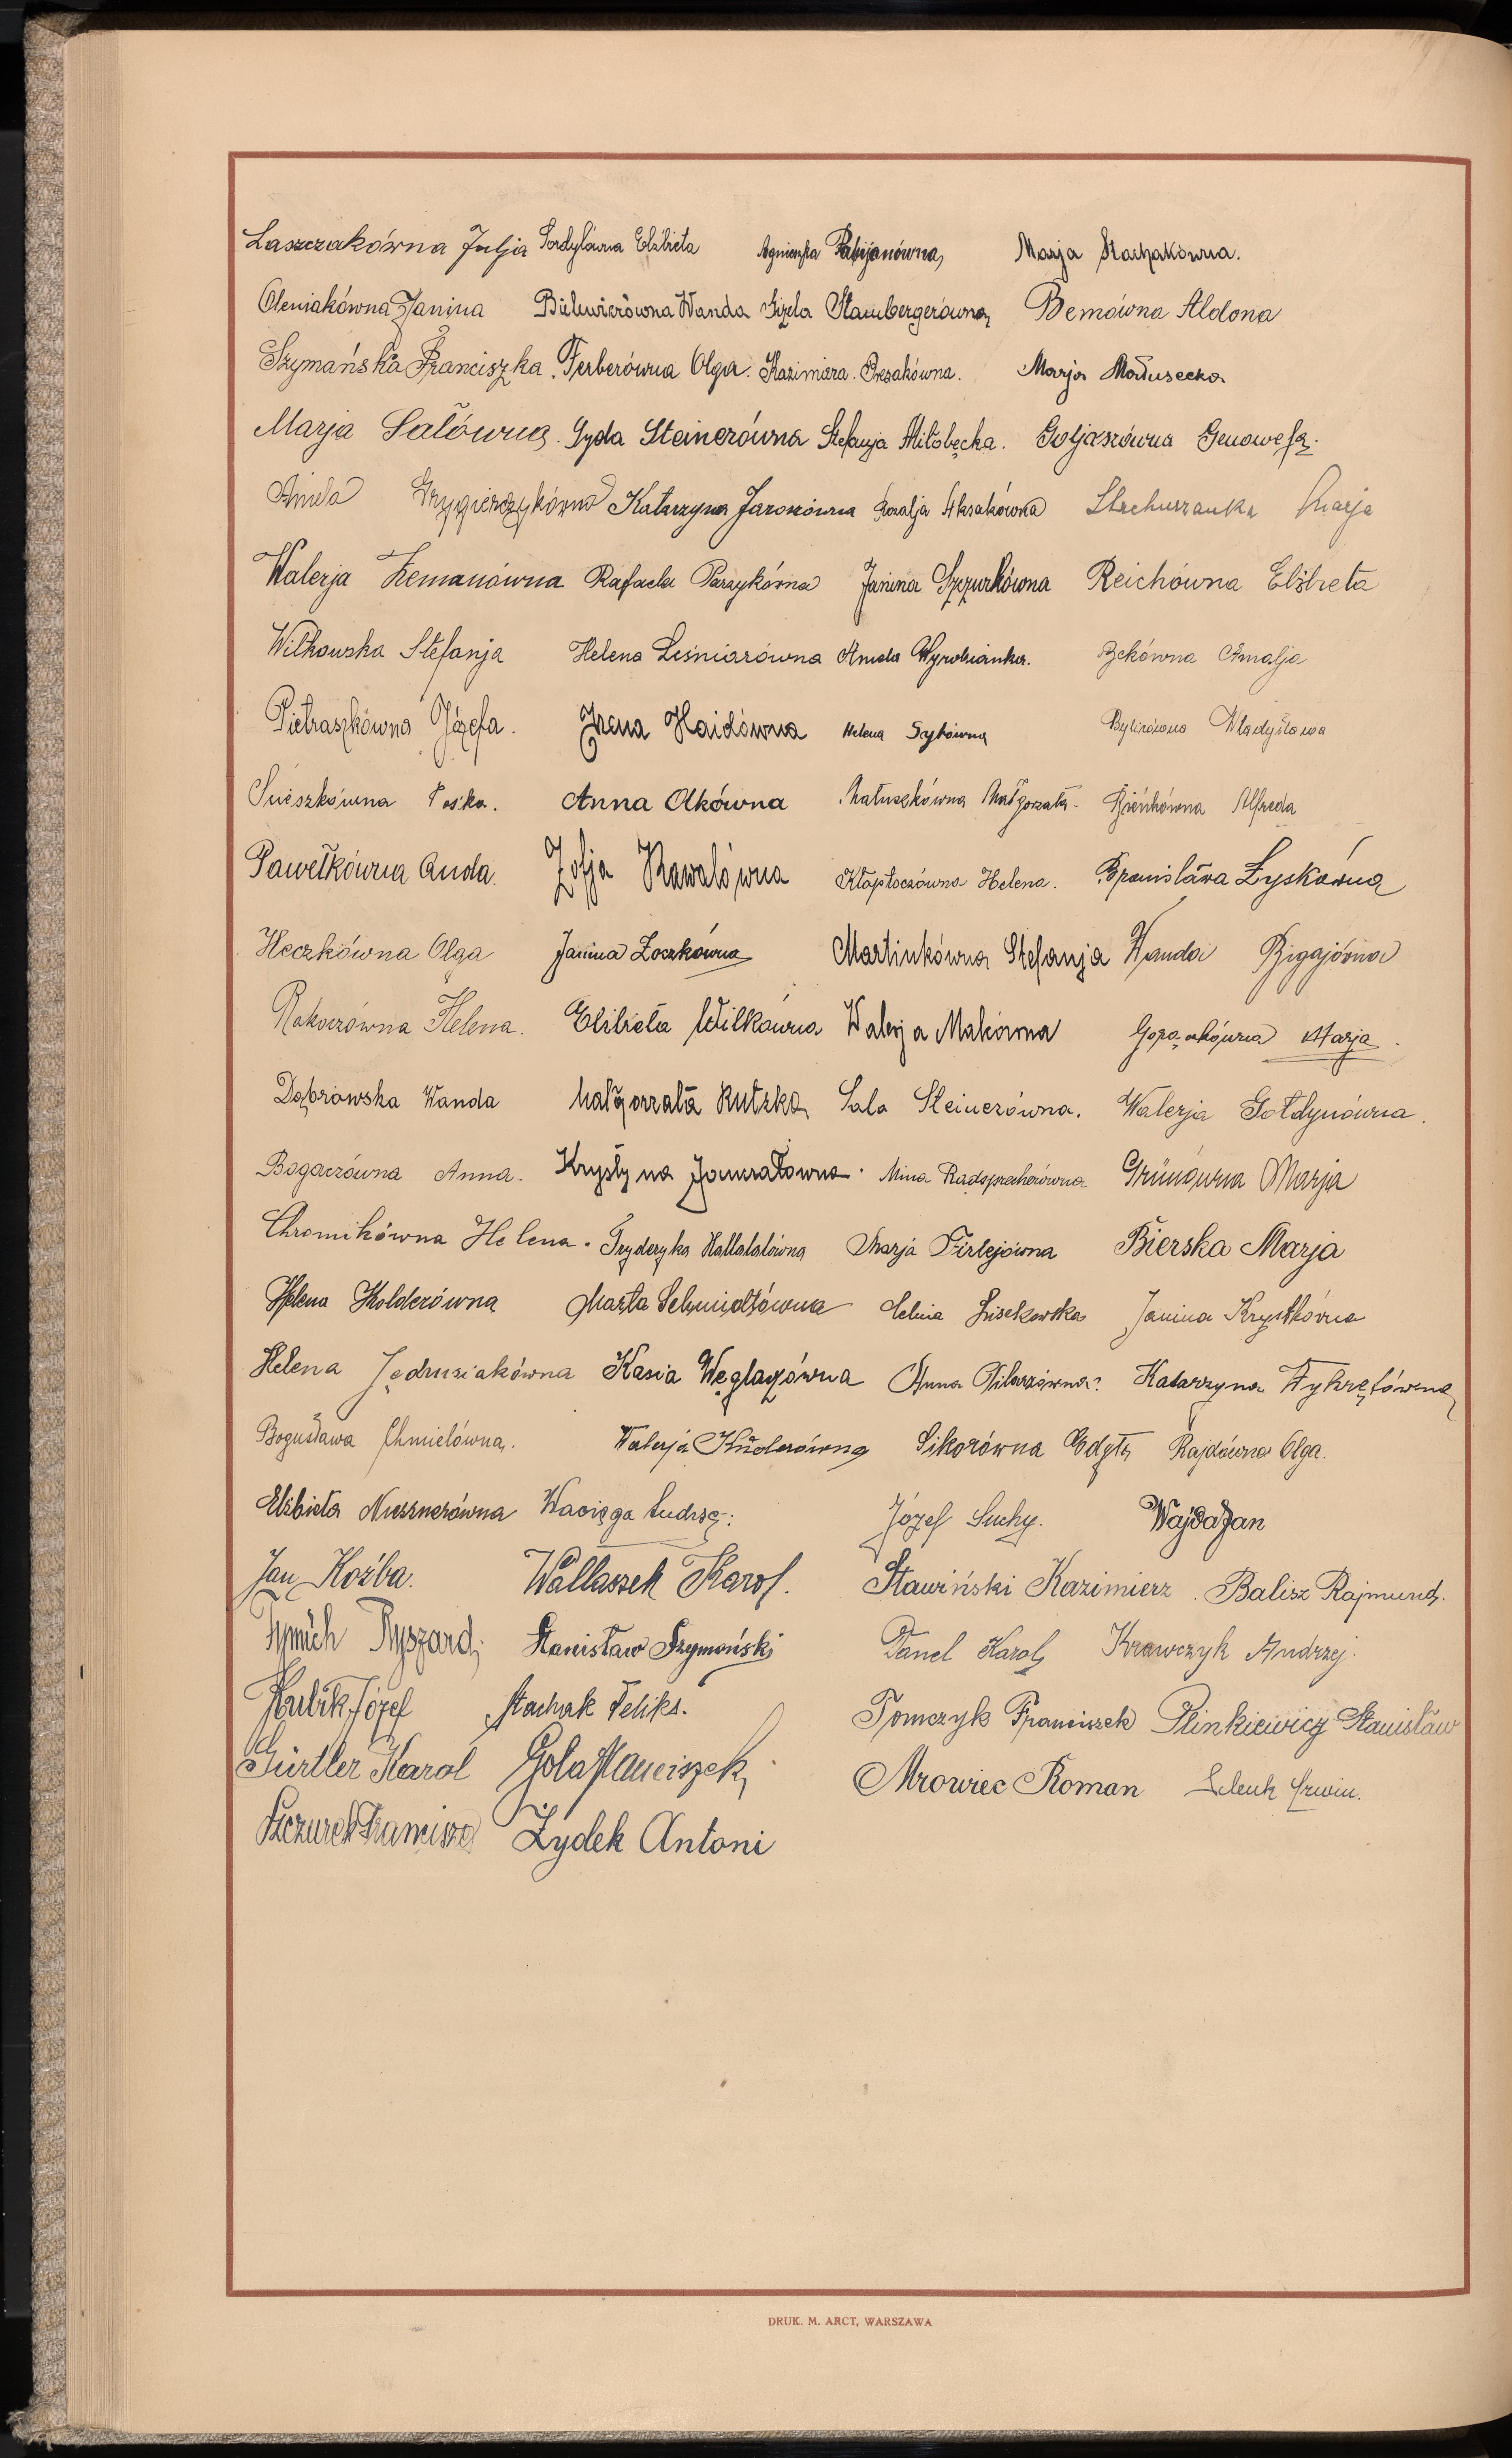 Laszczakówna Julja Pordylówna Elżbieta Agnieszka Pabijanówna Marja Stachakówna.
Oleniakówna Janina Bielewiczówna Wanda Gizela Stambergerówna Bemówna Aldona
Szymańska Franciszka. Ferberówna Olga. Kazimiera. Marja Małusecka
Marja Salówna. Gyda Steinerówna Stefanja Miłobęcka. Goljaszówna Genowefa.
Aniela Grzygierczykówna Katarzyna Jaroszówna Rozalja Aksakówna Marja
Walerja Zemanówna Rafaela Parzykówna Janina Szczurkówna Reichówna Elżbieta
Witkowska Stefanja Helena Leśniarówna Aniela Wyrobianka. Amalja
Pietraszkówna Józefa. Irena Haidówna Helena Sykówna Bylicówna Władysława
Anna Olkówna Matuszkówna Małgorzata. Alfreda
Pawełkówna Anda. Zofja Kawalówna Kłaptoczówna Helena. Bronisława Łyskówna
Heczkówna Olga Janina Loczkówna Martinkówna Stefanja Wanda Bigajówna
Rakoczówna Helena. Elżbieta Wilkówna Walerja Makówna Marja.
Dąbrowska Wanda Małgorzata Rutzka Sala Steinerówna. Walerja Gołdynówna.
Bogaczówna Anna. Krystyna Mina Grünówna Marja
Chromikówna Helena. Fryderyka Hallalalówna Marja Firlejówna Bierska Marja
Helena Kolderówna Marta Schmidtówna Lisikowska Janina Krystkówna
Helena Jędrusiakówna Kasia Węglarzówna Anna Pilarzówna. Katarzyna Wykrętówna
Bogusława Chmielówna. Walerja Kuderówna Sikorówna Edyta Rajdówna Olga.
Elżbieta Niesnerówna Wacięga Józef Suchy. Wajda Jan
Jan Koźba. Wallaszek Karol. Stawiński Kazimierz. Balisz Rajmund.
Ryszard Stanisław Szymoński Panel Karol Krawczyk Andrzej.
Hulik Józef Stachak Feliks. Tomczyk Franciszek Plinkiewicz Stanisław
Gürtler Karol Gola Franciszek Mrowiec Roman Erwin.
Szczurek Franciszek Żydek Antoni
DRUK. M. ARCT, WARSZAWA